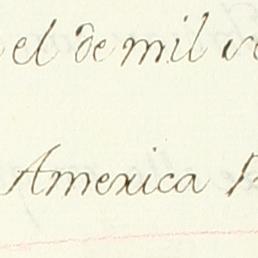 el de mil
America